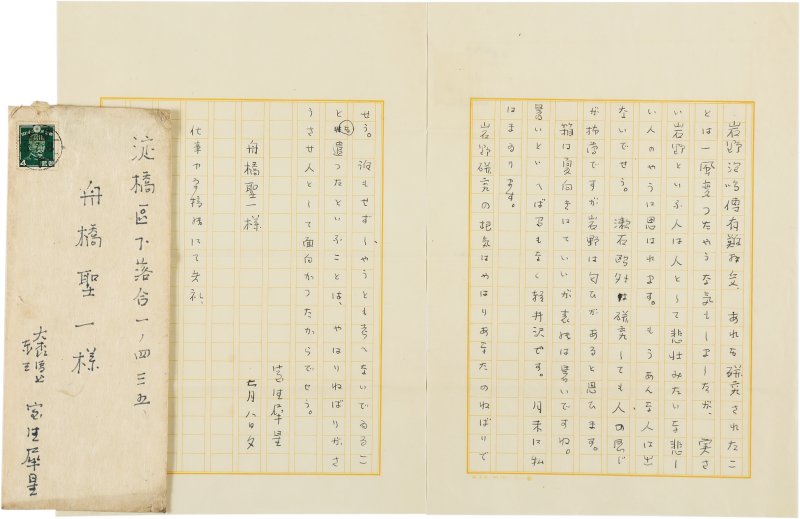 岩野泡鳴傳有難拝受、あれを研究されたこ
とは一風変つたやうな気もしましたが、実さ
い岩野といふ人は人として悲壮みたいな悲し
い人のやうに思はれます。もうあんな人は出
ないでせう。漱石鷗外は研究しても人の
ですが岩野は匂ひがあると思ひます。
箱は夏向きにていいが表紙は暑いですね。
暑いといへば間もなく軽井沢です。月末に私
はまゐります。
岩野研究の根気はやはりあなたのねばりで
せう。誰もせず、しやうとも考へないでゐるこ
とを遣つたといふことは、やはりねばりがさ
うさせ人として面白かつたからでせう。
室生犀星
舟橋聖一様 七月八日夕
仕事中 にて失礼、
淀橋區下落合一ノ四三五
舟橋聖一様
大森 馬込
室生犀星
4